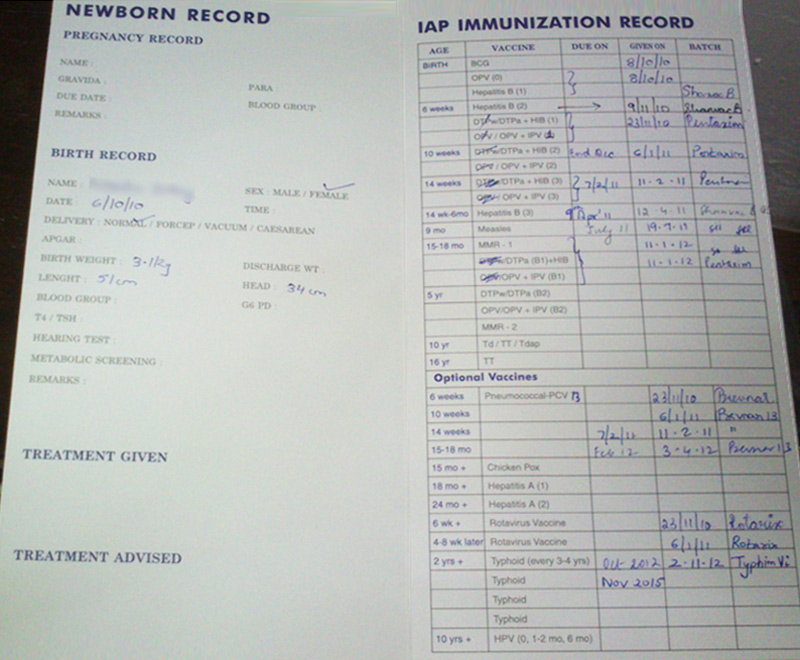 NEWBORN RECORD
PREGNANCY RECORD
NAME :
GRAVIDA : PARA :
DUE DATE : BLOOD GROUP :
REMARKS :
BIRTH RECORD
NAME : SEX : MALE / FEMALE
DATE : 6/10/10 TIME :
DELIVERY : NORMAL / FORCEP / VACUUM / CAESAREAN
APGAR :
BIRTH WEIGHT : 3.1kg DISCHARGE WT :
LENGHT : 51cm HEAD : 34 cm
BLOOD GROUP : G6 PD :
T4 / TSH :
HEARING TEST :
METABOLIC SCREENING :
REMARKS :
TREATMENT GIVEN
TREATMENT ADVISED
IAP IMMUNIZATION RECORD
AGE VACCINE DUE ON GIVEN ON BATCH
BIRTH BCG 8/10/10
OPV (0) 8/10/10
Hepatitis B (1) Shanvac B
6 weeks Hepatitis B (2) 9/11/10 Shanvac B
DTPw/DTPa + HIB (1) 23/11/10 Pentaxim
OPV / OPV + IPV
10 weeks DTPw/DTPa + HIB (2) 2nd Dec 6/1/11 Pentaxim
OPV / OPV + IPV (2)
14 weeks DTPw/DTPa + HIB (3) 7/2/11 11-2-11
OPV / OPV + IPV (3)
14 wk-6mo Hepatitis B (3) 9 Apr'11 12-4-11 Shanvac
9 mo Measles July 11 19-7-11 SII
15-18 mo MMR - 1 11-1-12
DTPw/DTPa (B1)+HIB 11-1-12 Pentaxim
OPV/OPV + IPV (B1)
5 yr DTPw/DTPa (B2)
OPV/OPV + IPV (B2)
MMR - 2
10 yr Td / TT / Tdap
16 yr TT
Optional Vaccines
6 weeks Pneumococcal-PCV 13 23/11/10
10 weeks 6/1/11
14 weeks 7/2/11 11-2-11 "
15-18 mo Feb 12 3-4-12
15 mo + Chicken Pox
18 mo + Hepatitis A (1)
24 mo + Hepatitis A (2)
6 wk + Rotavirus Vaccine 23/11/10 Rotarix
4-8 wk later Rotavirus Vaccine 6/1/11 Rotarix
2 yrs + Typhoid (every 3-4 yrs) Oct 2012 2-11-12 Typhim Vi
Typhoid Nov 2015
Typhoid
Typhoid
10 yrs + HPV (0, 1-2 mo, 6 mo)